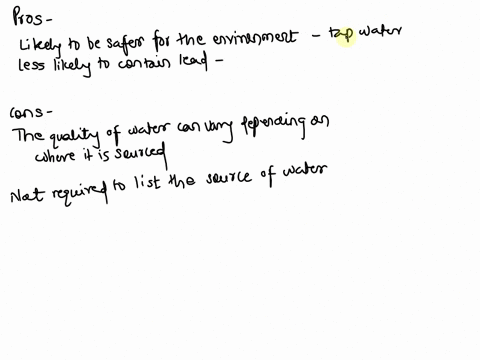 Pros-
Likely to be safer for the environment - tap water
less likely to contain lead -
Cons-
The quality of water can vary depending on
where it is sourced
Not required to list the source of water